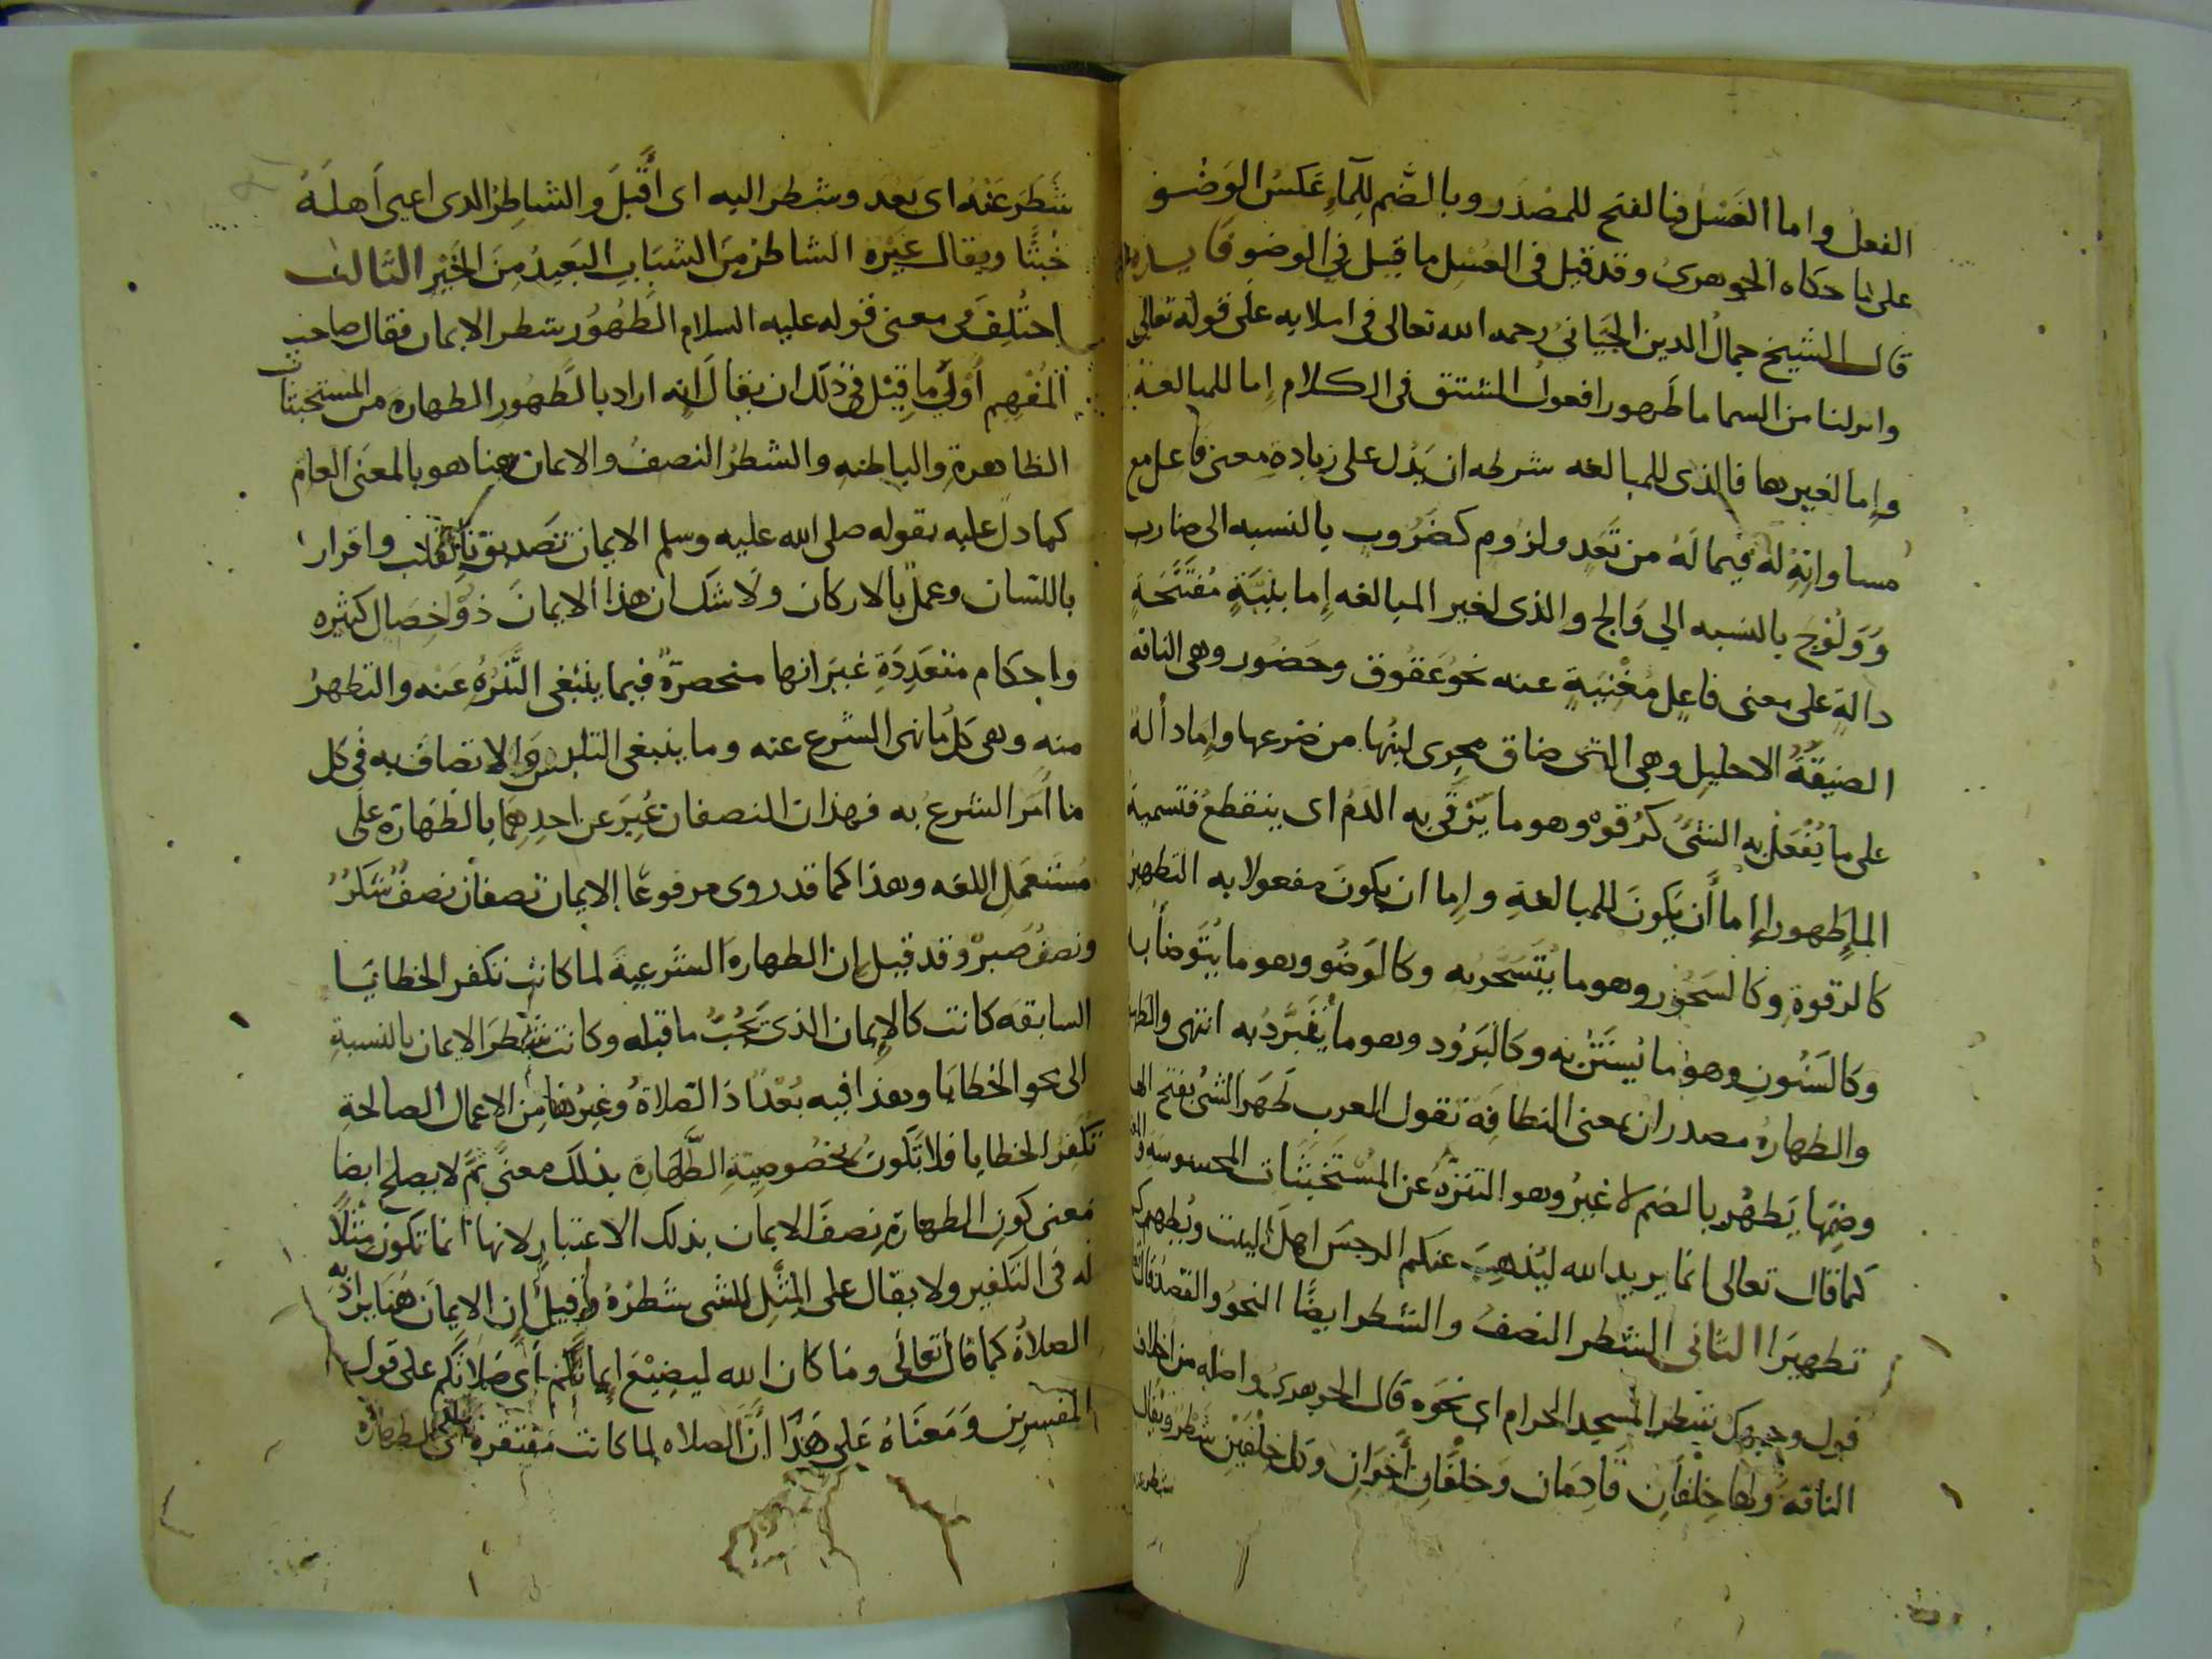 الفعل واما الغَسْل فبالفتح للمصْدَر وبالضَّم لِلمآءِ عَكسُ الوَضُو
على ما حكاه الجوهرىُ وقد قيل فى الغُسْل ما قيل فى الوضو
قال الشيخ جمالُ الدين الجَيّانىُ رحمه الله تعالى فى املايه على قوله تعالى
وانزلنا من السما ما طَهورا فعول المشتق فى الكلام اما للمبالغة
وإما لغيرها فالذى للمبالغه شرطه ان يَدُل على زيادةِ معنى فاعل مع
مساواتِهِ لهُ فيما لَهُ من تَعَدٍ ولزوم كضَرُوبٍ بالنسبه الى ضارب
وَوَلُوْجَ بالنسبه الي وَالج والذى لغير المبالغه إما بِنْيَةٍ مُفتَتَحَةٍ
دالةٍ على معنى فاعلٍ مُغْنِيَةٍ عنه نحوُ عَقُوق وحَصُور وهى الناقه
الضيقةُ الاحليلِ وهى التى ضاق مجرى لبنُها من ضرعها وإما دألة
على ما يُفْعَلُ به الشئُ كرُقوْءٍ وهو ما يَرْقى به الدمُ اى ينقطعُ فتسمية
المإِ طَهورا إما أن يكونَ للمبالغةِ وإما ان يكونَ مفعولا به التطهيرُ
كالرقوةِ وكالسَحُوْر وهو ما يُتَسَحَّرُ به وكالوَضُو وهو ما يُتَوضأُ به
وكالسَنُونِ وهوْ ما يُستَنُّ به وكالبَرُوْد وهو ما يُتَبَرَّدُ به انتهى
والطهارهُ مصدران بمعنى النظافَةِ تقول العرب طَهَرَ الشئُ بفتح الها
وضمِّها يَطهُر بالضم لا غيرُ وهو التنزُّهُ عن المُستَخبَثَات المحسوسَةِ
كما قال تعالى انما يريد الله ليُذهِبَ عنكم الرجسَ اهلَ البيت ويُطهركم
تطهيَرا الثانى الشطر النصفُ والشطر ايضًا النحوُ والقصدُ
فول وجهك شطر المسجد الحرام اى نحَوه قال الجوهرىُ واصله من اخلاف
الناقه ولها خِلْفانِ قَادِمَان وخِلْفَانِ أَخِرَانِ وكل خِلْفَيْن شَطرٌ ويُقال
شطرعنه
شَطَرَ عَنْهُ اى بَعُدَ وشطرَ اليه اى أَقْبَلَ والشاطِرُ الذى اعيى أهلَهُ
خُبْثًا ويقال غَيْرِه الشاطر من الشباب البَعيدُ مِنَ الخَيْرِ الثالث
اختُلِفَ فى معنى قوله عليه السلام الطَّهُور شطر الايمان فقال صاحب
المُفْهِم أَوْلَى ما قِيْل فى ذلك ان يقالَ انه اراد بالطَّهُورِ الطهارة من المستخبثات
الظاهرةِ والباطنهِ والشطرُ النصفُ والايمان هنا هو بالمعنَى العام
كما دل عليه بقوله صلى الله عليه وسلم الايمان تَصديق بالقلب واقرارا
باللسان وعملٌ بالاركان ولا شك ان هذا الايمانَ ذوْ خِصَالٍ كثيره
واحكام متعَدِدَةٍ غيَر انها منحصرةٌ فيما ينبغى التَّنَزُهُ عَنه والتطهرُ
منه وهى كلُ ما نهى الشرع عنه وما ينبغى التلبس والاتصافُ به فى كل
ما أَمَر الشرعُ به فهذان النصفان عُبِرَ عن احدِهِمَا بالطَهَارَة على
مُستَعمَلِ اللغه وهذا كما قد روى مرفوعًا الايمان نصفان نصفٌ شكرٌ
ونصفٌ صبرٌ وقد قيل إن الطهارهَ الشرعيةَ لما كانت تكفر الخطايَا
السابقه كانت كالإيمان الذى يَجُبُ ما قبله وكانت شطرَ الايمان بالنسبةِ
الى محو الخطايا وهذا فيه بُعْدٌ اذ الصلاةُ وغيرُها مِن الاعمال الصالحةِ
تكفر الخطايا فلا تكونُ لخصُوصيةِ الطَّهَارة بذلك معنىً ثمَّ لا يصلح ايضا
معنى كون الطهارةِ نصفَ الايمان بذلك الاعتبارِ لانها انما تكون مِثْلاً
له فى التكفير ولا يقال على المِثْلِ للشى شطرُهُ وقيلَ ان الايمانَ هُنَا يرادُ به
الصلاةُ كما قال تعالى وما كان الله ليضِيْعَ إيمانكُم أى صَلاتكُم على قول
المفسرين وَمَعنَاهُ عَلى هَذَا انَّ الصلاه لما كانت مفتقرةً الى الطهاره